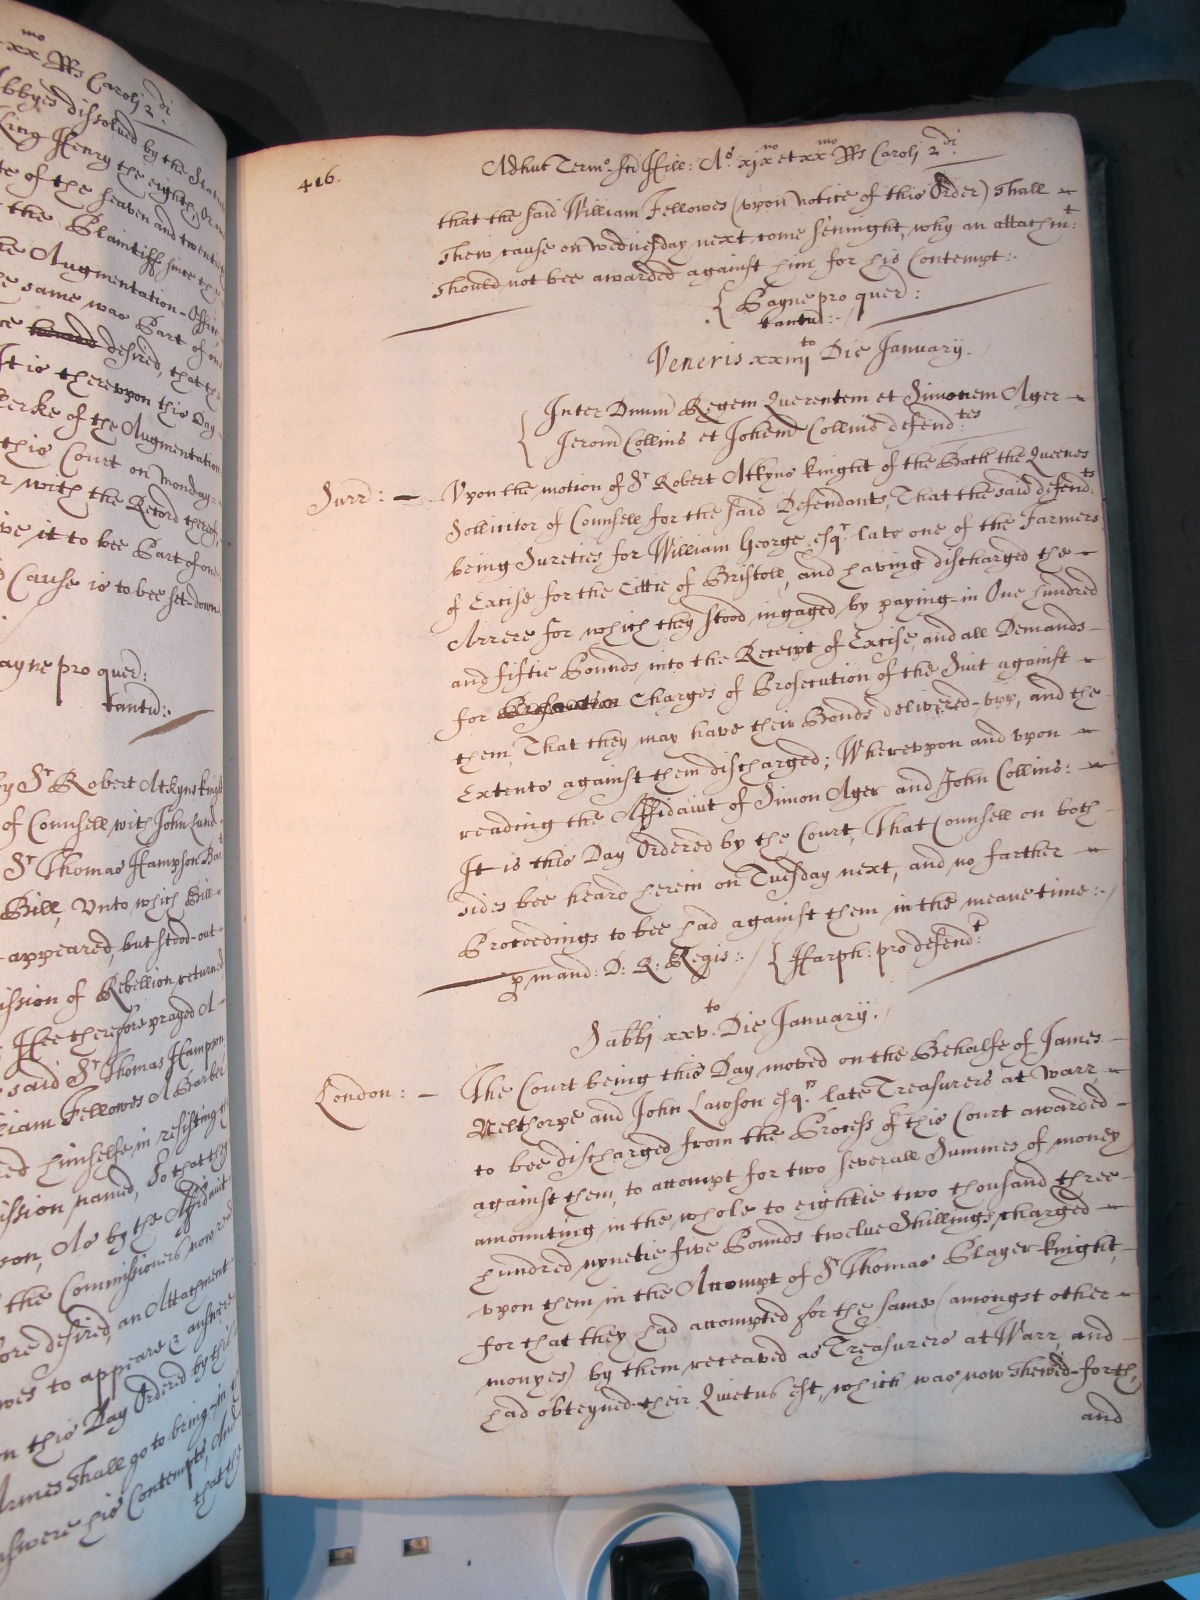 xx mo Rs Caroli 2 di
Abbyes dissolved by the Statu
King Henry the eighth, Or an
te of the seaven and twentith
the Plaintiff since the
he Augmentation-Office
e same was Part of one
desired, that the
It is therevpon this Day
lerke of the Augmentation
this Court on Monday-
r with the Record thereof,
ve it to bee Part of one
d Cause is to bee set-down
ayne pro quer:
tantu:.
y Sr Robert Atkyns knight
of Counsell, with John Lund
Sr Thomas Hampson Bart
Bill, Vnto which Bill
appeared, but stood-out
ission of Rebellion returned
Hee therefore prayed A
said Sr Thomas Hampson
liam Fellowes A Barber
red himselfe, in resisting
ission, named, So that they
on, As by the Affidavit
the Commissioners now read
ore desired, an Attachment
wes to appeare & answere
n this Day Ordered by the
Armes shall go to bring-in
nswere his Contempts, And
that the
416.
Adhuc Termo. Sci Hill: Ao. xjx no et xx mo Rs Caroli 2 di:
that the said William Fellowes (vpon notice of this Order) shall
shew cause on Wednesday next come sennight, why an attachmt:
should not bee awarded against him for his Contempt:.
{ Bayne pro quer:
tantu:./
Veneris xxiiij to Die January.
{ Inter Dnum Regem Querentem et Simonem Ager
Jerom Collins et Johem Collins defend tes
Surr: Vpon the motion of Sr Robert Atkyns knight of the Bath the Queenes
Sollicitor of Counsell for the said Defendants, That the said defend ts:
being Sureties for William George esqr late one of the Farmers
of Excise for the Cittie of Bristoll, and having discharged the
Arrere for which they stood ingaged by paying-in One hundred
and fiftie Pounds into the Receipt of Excise, and all Demands
for Charges of Prosecution of the Suit against
them, That they may have their Bonds delivered-vpp, and the
Extents against them discharged; Wherevpon and vpon
reading the Affidavit of Simon Ager and John Collins:
It is this Day Ordered by the Court, That Counsell on both
sides bee heard herein on Tuesday next, and no farther
Proceedings to bee had against them in the meane time:.
p mand: D: R: Regis:. / { Harph: pro defendt:
Sabbi xxv to Die January.
London: The Court being this Day moved on the Behalfe of James
Nelthorpe and John Lawson esqrs late Treasurers at Warr
to bee discharged from the Process of this Court awarded
against them, to accompt for two severall Summes of money
amounting in the whole to eightie two thousand three
hundred nynetie five Pounds twelve Shillings, charged
vpon them in the Accompt of Sr Thomas Player knight,
for that they had accompted for the same (amongst other
monyes) by them received as Treasurers at Warr, and
had obteyned their Quietus est, which was now shewed-forth,
and